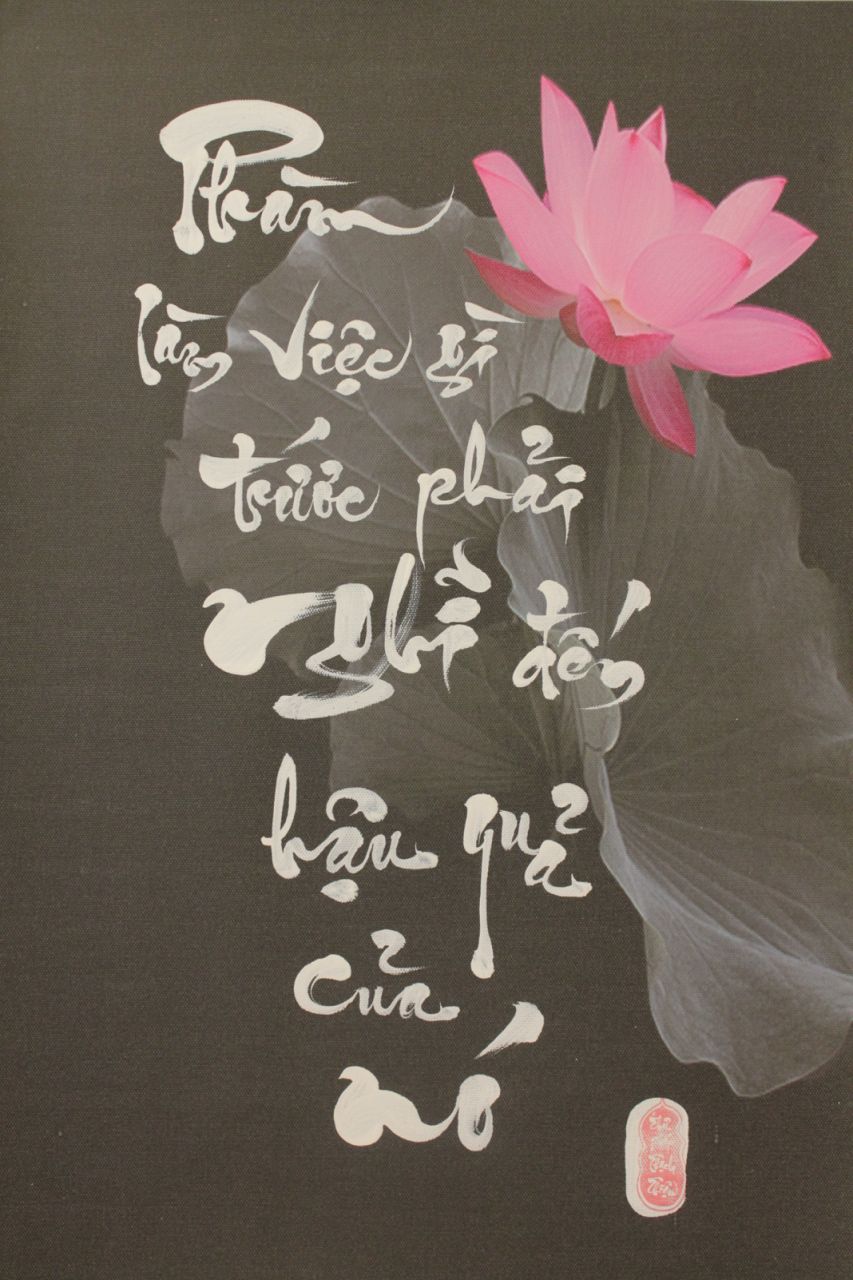 Phàm
làm việc gì
trước phải
nghĩ đến
hậu quả
của
nó